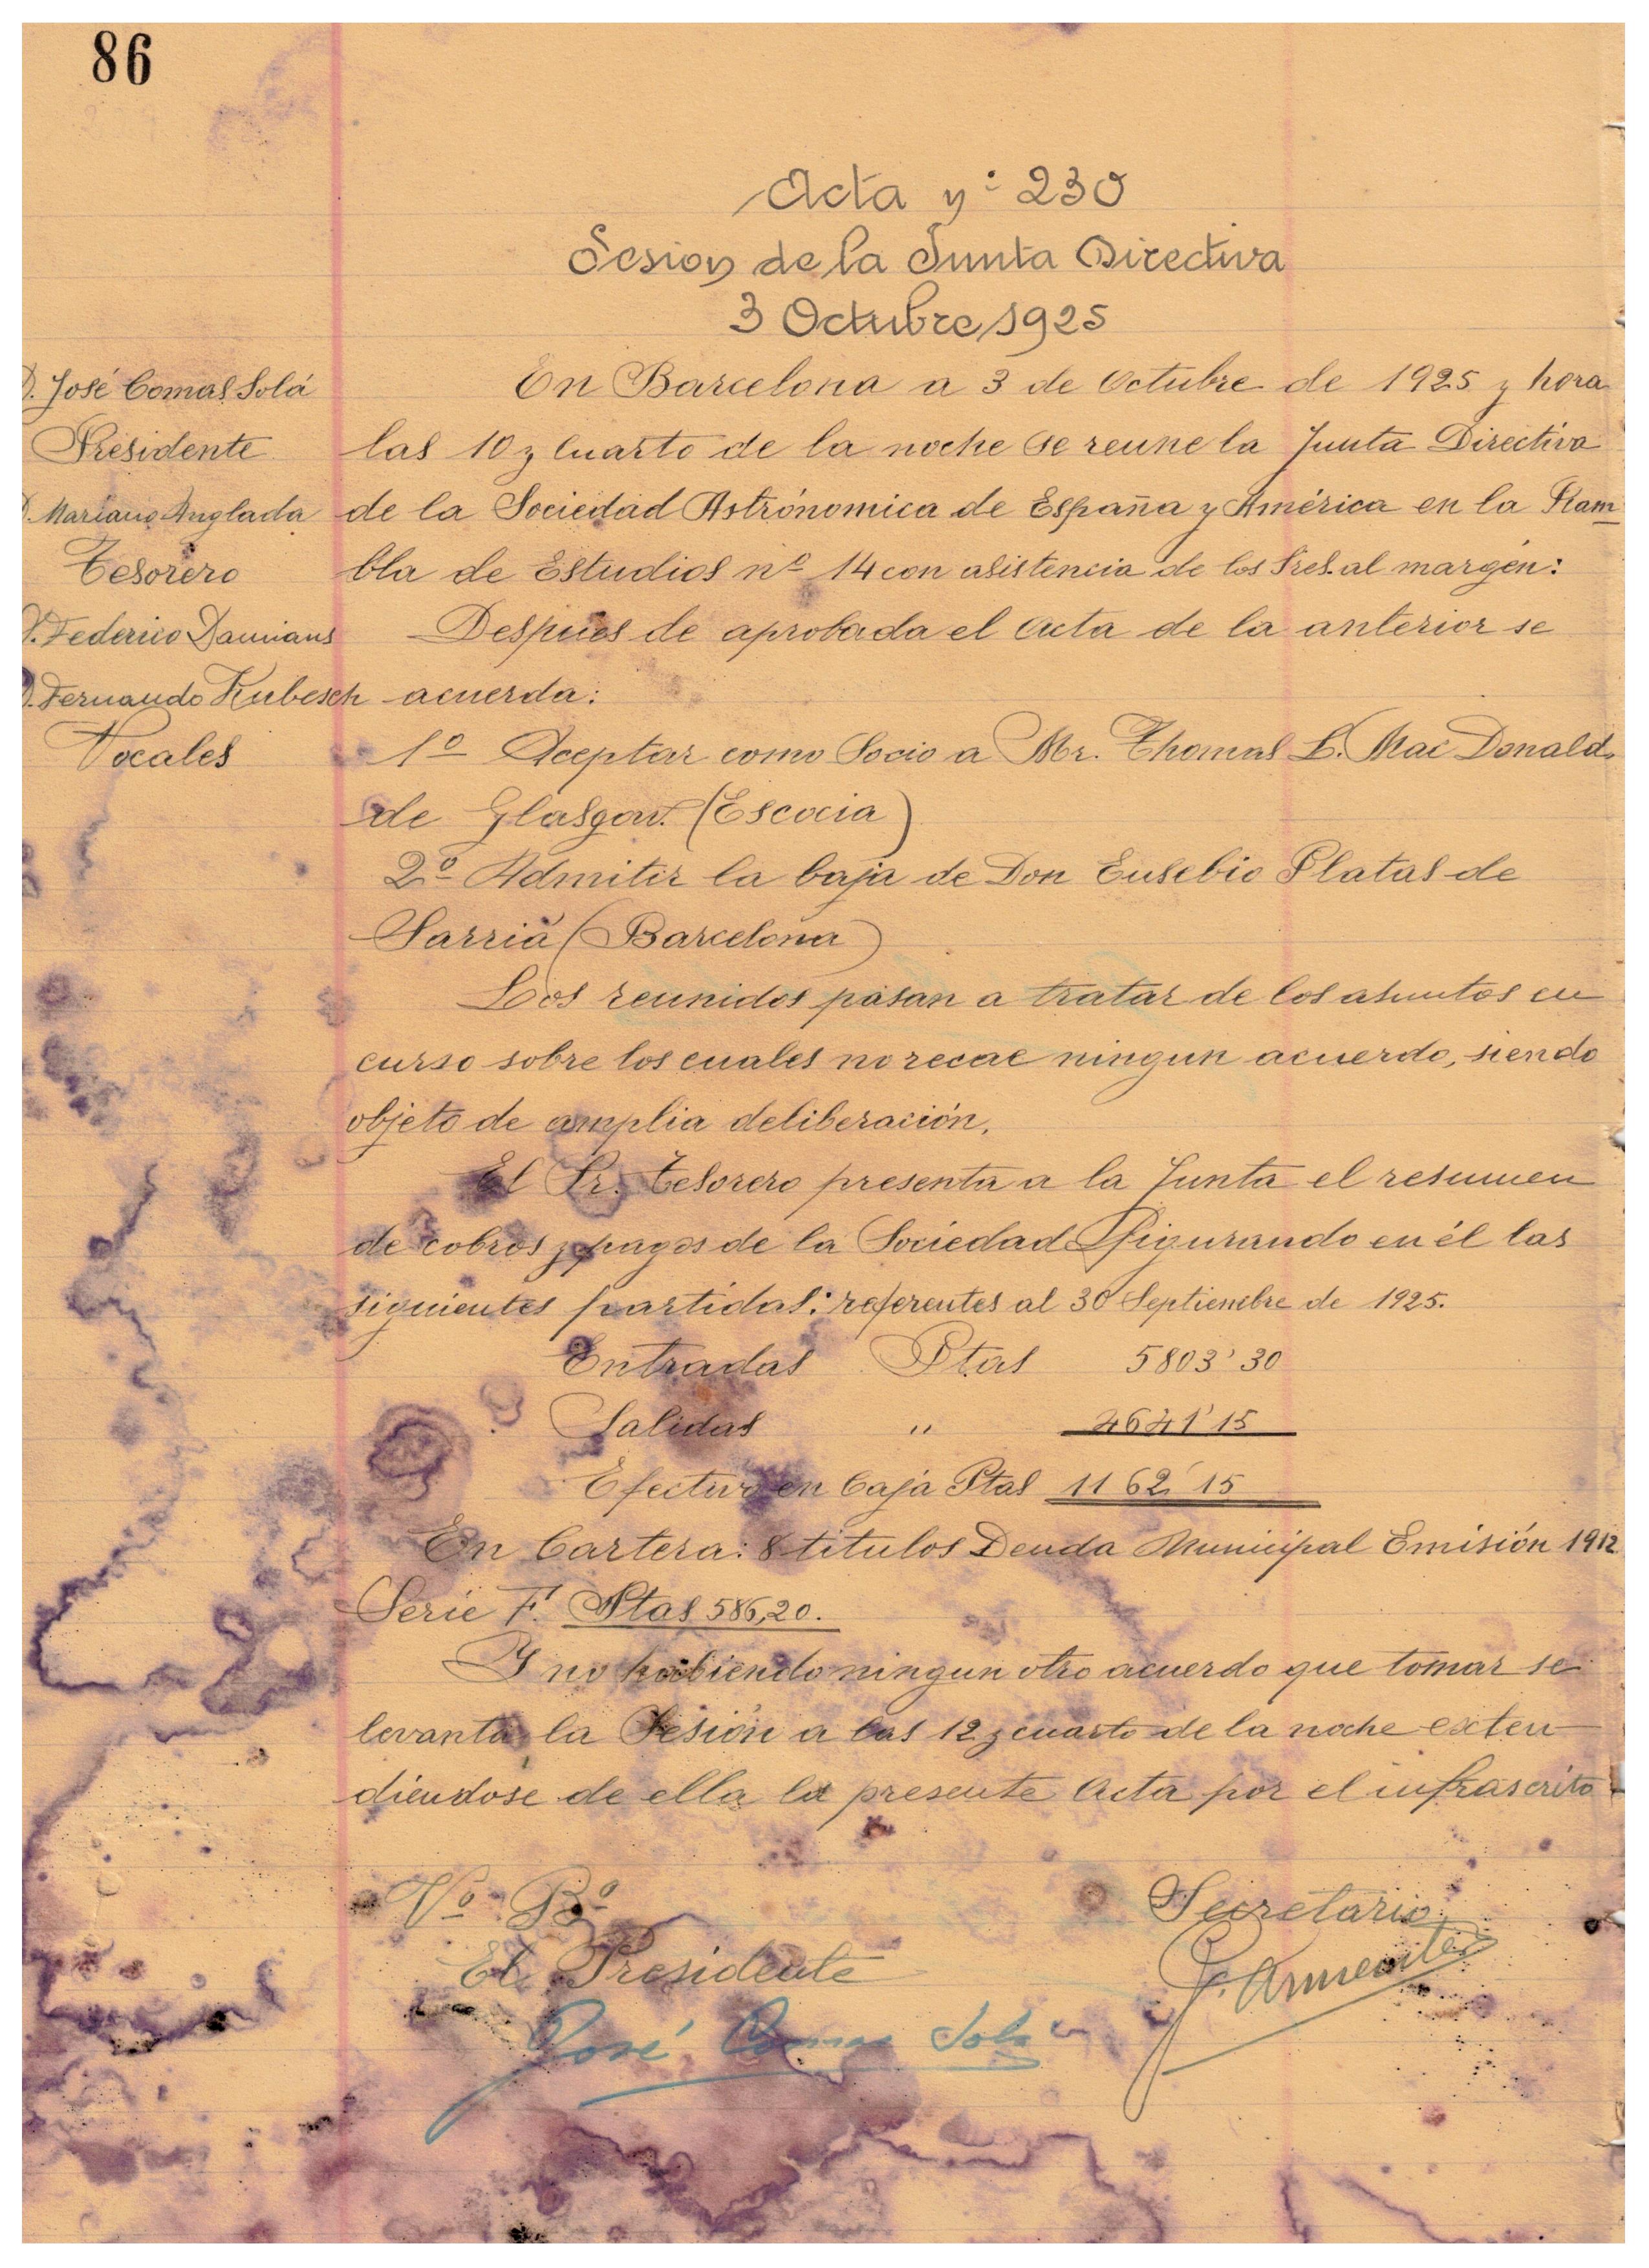 86
Acta nº 230
Sesion de la Junta Directiva
3 Octubre 1925
D. José Comas Solá
Presidente
D. Mariano Anglada
Tesorero
D. Federico Damians
D. Fernando Kubesch
Vocales
En Barcelona a 3 de Octubre de 1925 y hora
las 10 y cuarto de la noche se reune la Junta Directiva
de la Sociedad Astrónomica de España y América en la Ram
bla de Estudios nº 14 con asistencia de los Sres. al margén:
Despues de aprobada el acta de la anterior se
acuerda:
1º Aceptar como Socio a Mr. Thomas L. Mac Donald,
de Glasgow. (Escocia)
2º Admitir la baja de Don Eusebio Platas de
Sarriá (Barcelona)
Los reunidos pasan a tratar de los asuntos en
curso sobre los cuales no recae ningun acuerdo, siendo
objeto de amplia deliberación.
El Sr. Tesorero presenta a la Junta el resumen
de cobros y pagos de la Sociedad figurando en él las
siguientes partidas: referentes al 30 Septiembre de 1925.
Entradas Ptas 5803'30
Salidas " 4641'15
Efectivo en Caja Ptas 1162'15
En Cartera: 8 titulos Deuda Municipal Emisión 1912
Serie F. Ptas 586,20.
Y no habiendo ningun otro acuerdo que tomar se
levanta la Sesión a las 12 y cuarto de la noche exten
diendose de ella la presente acta por el infrascrito
Vº Bº
El Presidente
José Comas Solá
Secretario
J. Armenter